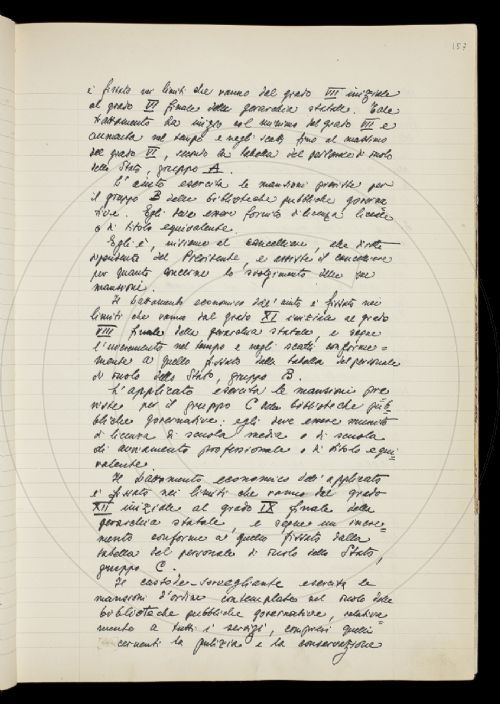 157
è fissato nei limiti che vanno dal grado VII iniziale
al grado VI finale della gerarchia statale. Tale
trattamento ha inizio col minimo del grado VII e
aumenta nel tempo e negli scatti fino al massimo
del grado VI, secondo la tabella del personale di ruolo
dello Stato, gruppo A.
L'aiuto esercita le mansioni previste per
il gruppo B delle biblioteche pubbliche governa
tive. Egli deve essere fornito di licenza liceale
o di titolo equivalente.
Egli è, insieme al cancelliere, alla diretta
dipendenza del Presidente, e assiste il cancelliere
per quanto concerne lo svolgimento delle sue
mansioni.
Il trattamento economico dell'aiuto è fissato nei
limiti che vanno dal grado XI iniziale al grado
VIII finale della gerarchia statale e segue
l'incremento nel tempo e negli scatti conforme=
mente a quello fissato dalla tabella del personale
di ruolo dello Stato, gruppo B.
L'applicato esercita le mansioni pre
viste per il gruppo C delle biblioteche pub=
bliche governative: egli deve essere munito
di licenza di scuola media o di scuola
di avviamento professionale o di titolo equi=
valente.
Il trattamento economico dell'applicato
è fissato nei limiti che vanno dal grado
XII iniziale al grado IX finale della
gerarchia statale, e segue un incre=
mento conforme a quello fissato dalla
tabella del personale di ruolo dello Stato,
gruppo C.
Il custode-sorvegliante esercita le
mansioni d'ordine contemplate nel ruolo delle
biblioteche pubbliche governative, relativa
mente a tutti i servizi, compresi quelli
cernenti la pulizia e la conservazione